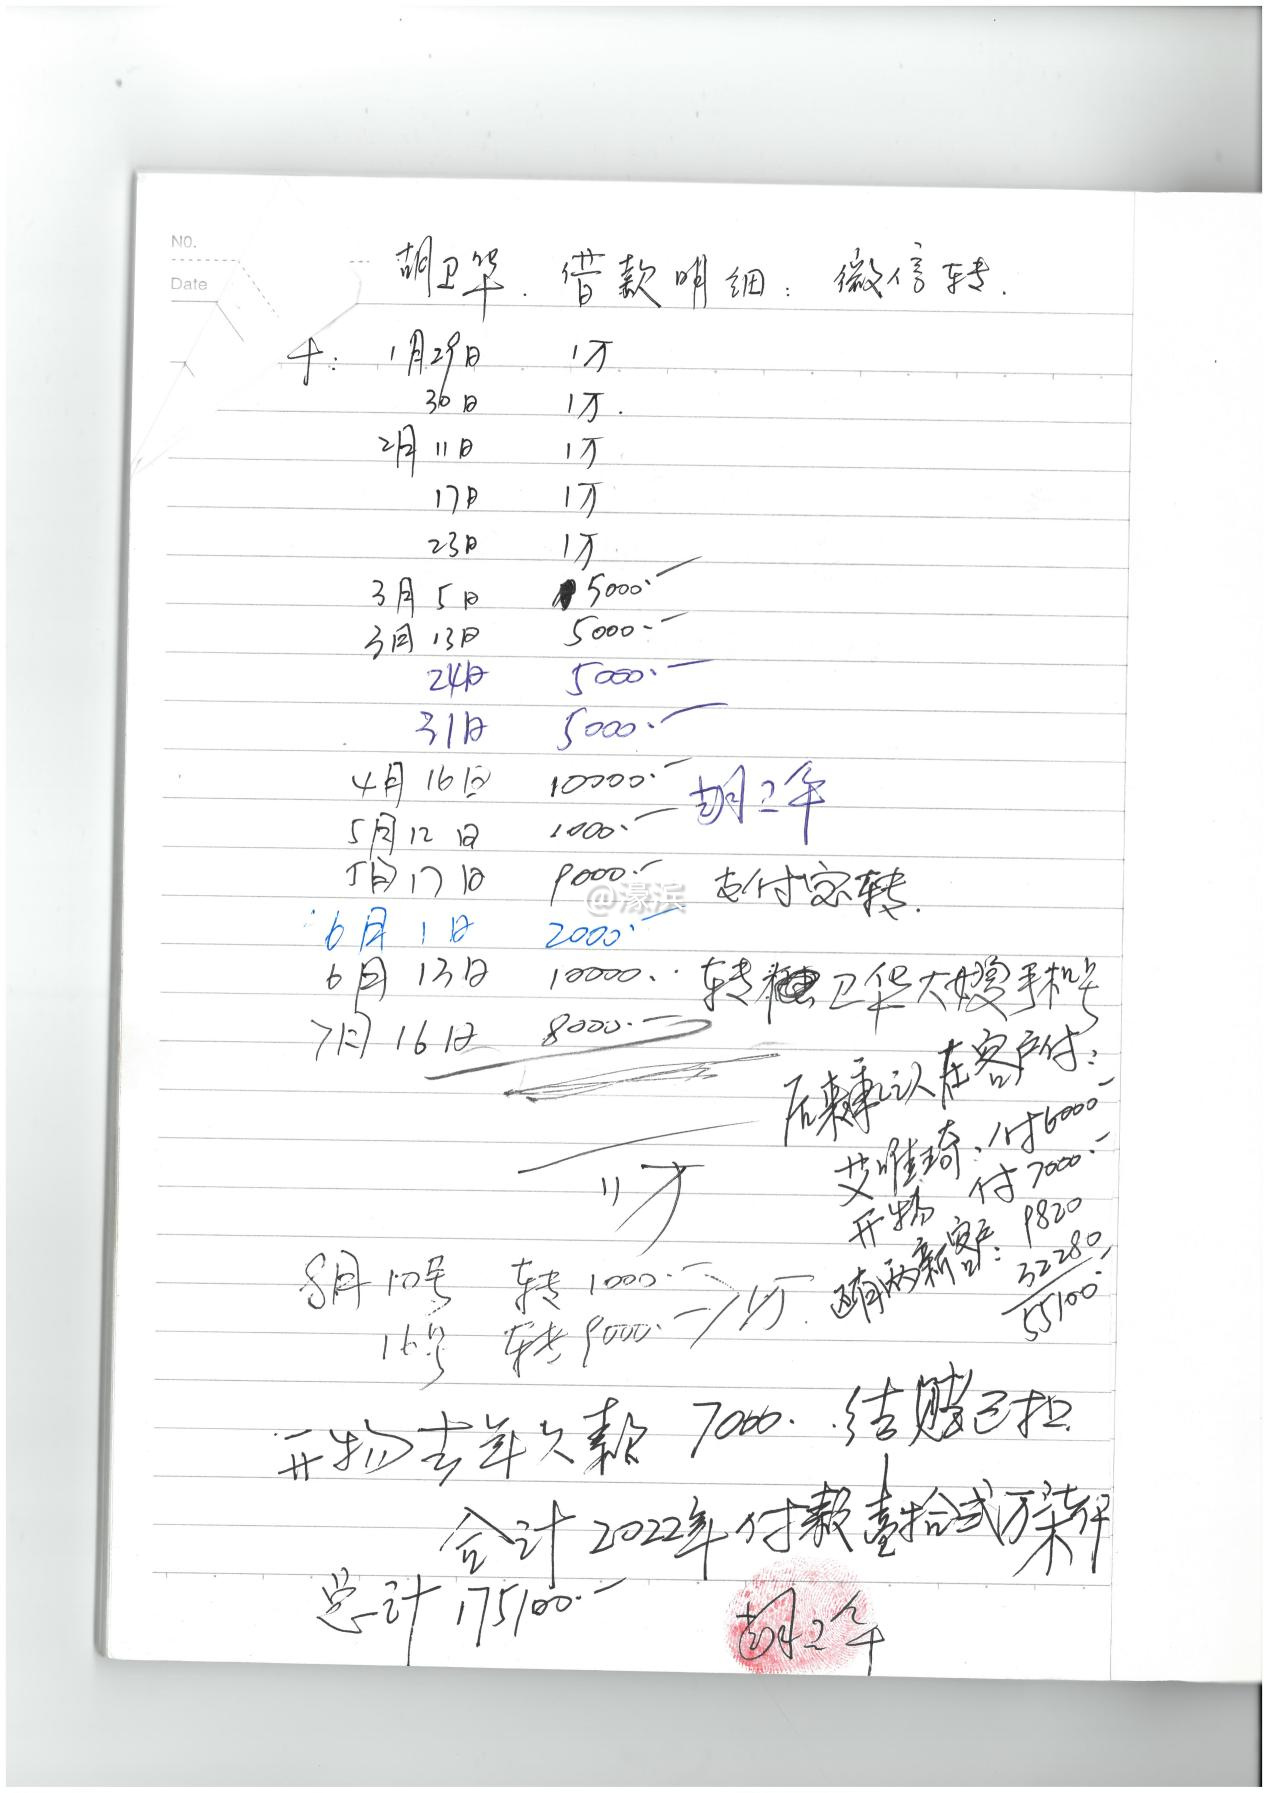 NO.
Date
胡卫华. 借款明细: 微信转.
1月29日 1万
30日 1万.
2月11日 1万
17日 1万
23日 1万
3月5日 5000.一
3月13日 5000.一
24日 5000.一
31日 5000.一
4月16日 10000.一 胡卫华
5月12日 1000.一
5月17日 9000.一 支付宝转.
@濠浜
6月1日 2000.一
6月13日 10000.. 转 卫华大嫂手机号
7月16日 8000.一
后来重认在客户付:
艾唯琦: 付6000一
11万
开物 付7000.一
还有两新客户: 9820
32280
55100.一
8月10号 转1000.一
16号 转9000.一 1万.
开物去年欠款 7000. 结账已扣
合计2022年付款壹拾贰万柒仟
总计175100.一
胡卫华